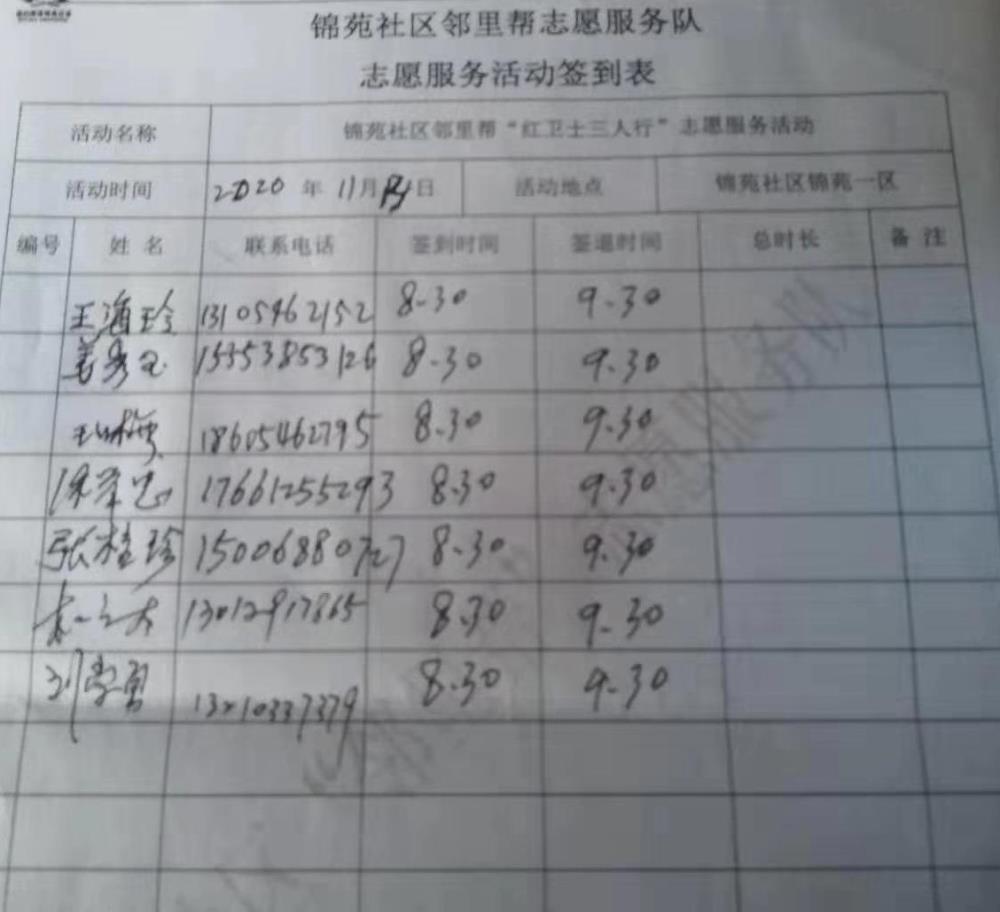 锦苑社区邻里帮志愿服务队
志愿服务活动签到表
活动名称 锦苑社区邻里帮“红卫士三人行”志愿服务活动
活动时间 2020 年 11月 日 活动地点 锦苑社区锦苑一区
编号 姓 名 联系电话 签到时间 签退时间 总时长 备 注
王海玲 13105462152 8.30 9.30
姜秀玉 15553853126 8.30 9.30
18605462795 8.30 9.30
17661255293 8.30 9.30
张桂珍 15006880727 8.30 9.30
13012917865 8.30 9.30
刘学勇 13210337379 8.30 9.30